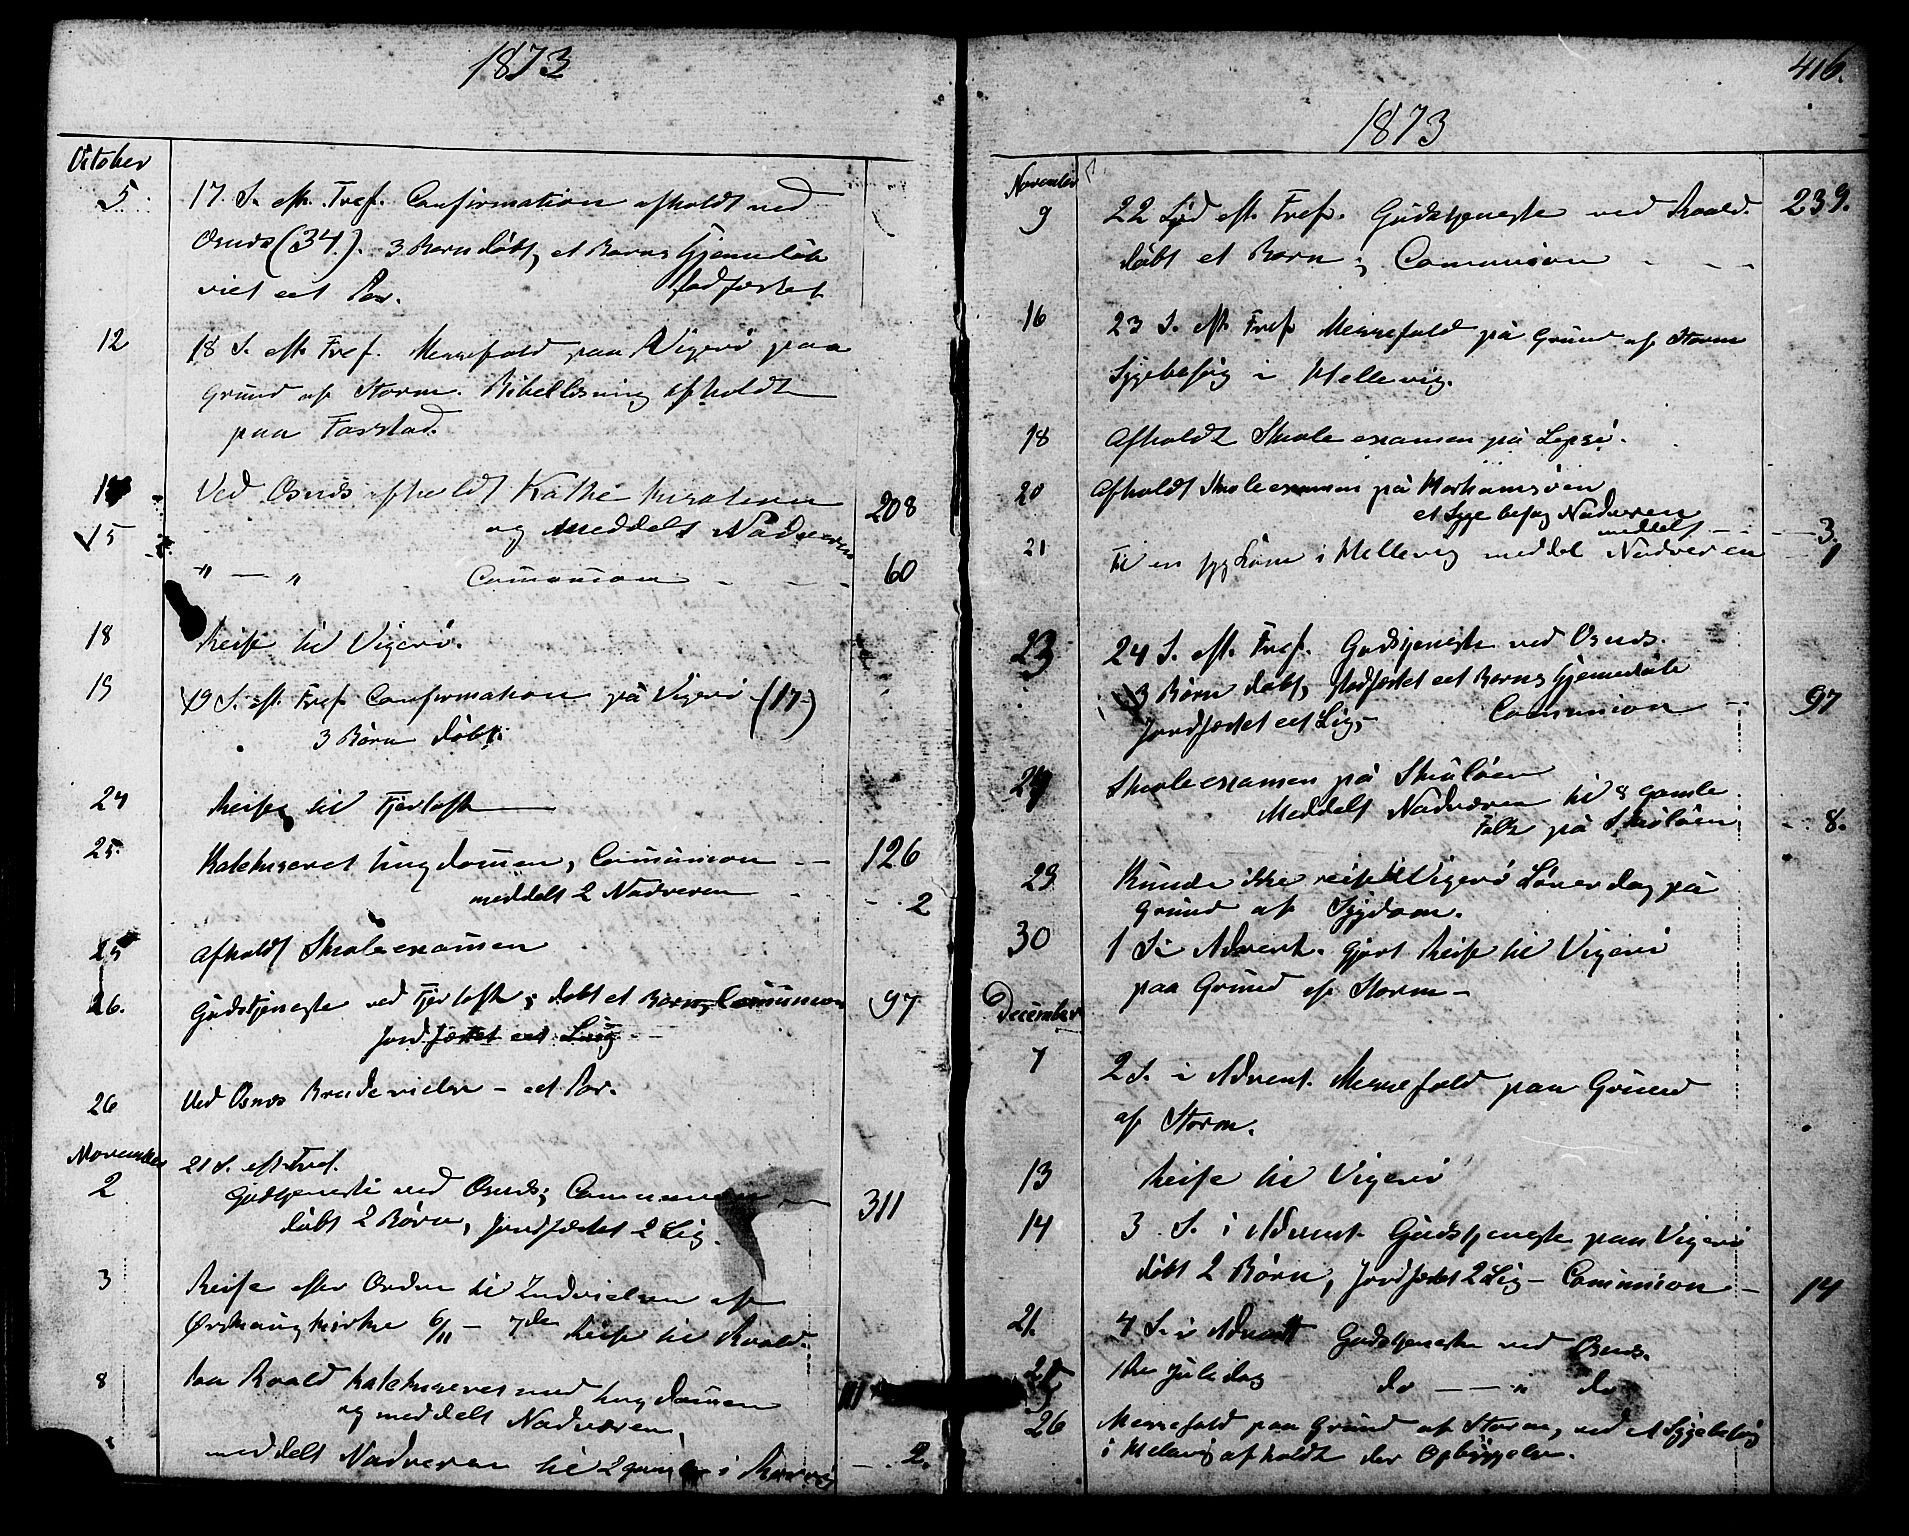 1873
October
5 17. S. eft. Tref. Confirmation afholdt ved
Osnæs (34). 3 Børn døbt, et Barns Hjemmedåb
viet eet Par. stadfæstet
12 18 S. eft. Tref. Messefald paa Vigerø paa
Grund af Storm. Bibellæsning afholdt
paa Farstad.
Ved Osnæs afholdt
15 og meddelt Nadveren 208
" — " Communion - - - 60
18 Reise til Vigerø.
19 19 S. eft. Tref. Confirmation på Vigerø (17)
3 Børn døbt.
24 Reise til Fjørtoft
25. Katekiseret Ungdommen, Communion - - 126
meddelt 2 Nadveren - - - 2
25 Afholdt Skoleexamen
26. Gudstjeneste ved Fjørtoft; døbt et Barn, Communion 97
Jordfæstet eet Liig
26 Ved Osnæs Brudevielse - eet Par.
November
2 21 S. eft. Tref.
Gudstjeneste ved Osnæs; Communion - 311
døbt 2 Børn, Jordfæstet 2 Lig.
3 Reise efter Ordre til Indvielsen af
Ørskoug kirke 6/11 - 7de Reise til Roald.
8 Paa Roald Katekiseret med Ungdommen
og meddelt Nadveren,
meddelt Nadveren til 2 gamle i - . 2.
416.
1873
November
9 22 Sød eft. Tref. Gudstjeneste ved Roald. 239.
døbt et Barn; Communion - - -
16 23 S. eft. Tref Messefald på Grund af Storm
Sygebesøg i Hellevig.
18 Afholdt Skoleexamen på Lepsø.
20 Afholdt Skoleexamen på Harhamsøen
et Sygebesøg Nadveren
meddelt - - - 3.
21 Til en syg i Hellevig meddelt Nadveren 1
23 24 S. eft. Tref. Gudstjeneste ved Osnæs.
3 Børn døbt, stadfæstet eet Barns Hjemmedåb
Jordfæstet eet Lig, Communion - 97
Skoleexamen på Skuløen
Meddelt Nadveren til 8 gamle
Folk på Skuløen - . 8.
29 Kunde ikke reise til Vigerø Lørerdag på
Grund af Sygdom.
30 1 S. i Advent. gjort Reise til Vigerø
paa Grund af Storm -
December
7 2 S. i Advent. Messefald paa Grund
af Storm.
13 Reise til Vigerø
14 3. S. i Advent. Gudstjeneste paa Vigerø
døbt 2 Børn, Jordfæstet 2 Lig - Communion - 14
21. 4 S. i Advent Gudstjeneste ved Osnæs.
25 1ste Juledag do — — " do
26 Messefald paa Grund af Storm, ved et Sygebesøg
i afholdt der Opbyggelse.